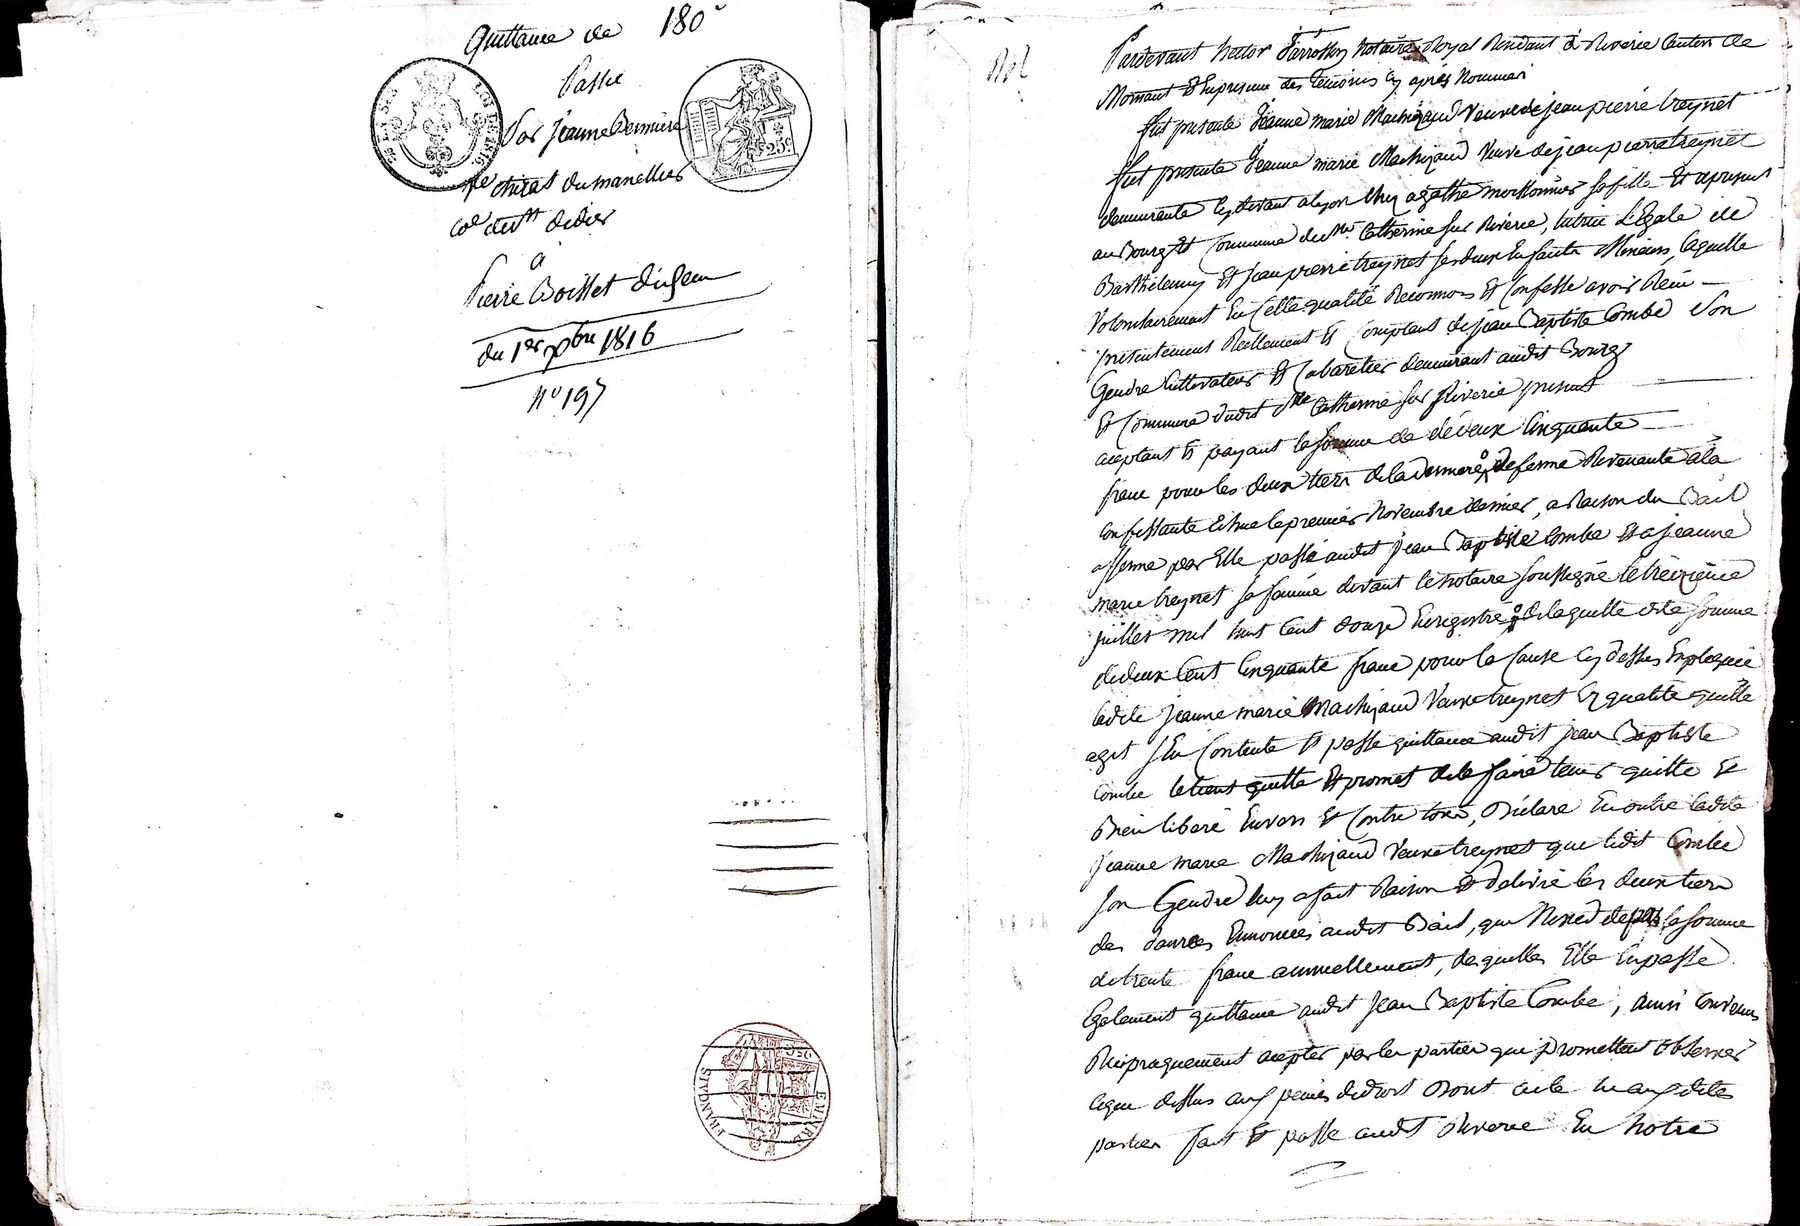 Quittance de 180
Passée
Par jeanne Bermière
chirat du manellier
cne de st didier
a
Pierre Boisset dizeu
du 1er xbre 1816
No 197
28 LOI DE 1816.
25c
EMPIRE
FRANÇAIS
Pardevant hector notaire Royal Résidant à Riverie Canton de
Mornant Et En présence des témoins cy après Nommés
fut présente Jeanne marie veuve de jean pierre treynet
fut présente Jeanne marie Machizaud veuve de jean pierre treynet
demeurante cydevant a lyon Chez agathe moissonnier sa fille Et a present
au Bourg Et Commune de Ste Catherine sur Riverie, tutrice Légale de
Barthélemy Et jean pierre treynet ses deux Enfants Mineurs, laquelle
Volontairement En Cette qualité Reconnois Et Confesse avoir Reçu
présentement Réellement Et Comptant de jean Baptiste Combe son
Gendre Cultivateur Et Cabaretier demeurant audit Bourg
Et Commune dudit Ste Catherine sur Riverie présent
aceptant Et payant la somme de deux Cinquante
franc pour les deux tiers de la derniere de ferme Revenante à la
Confessante Echue le premier Novembre dernier, a Raison du Bail
afferme par Elle passé audit jean Baptiste Combe Et a jeanne
marie treynet sa femme devant le notaire soussigné le treizieme
juillet mil huit Cent douze Enregistré de laquelle dite somme
de deux Cent Cinquante franc pour la Cause cy dessus Expliquée
ladite jeanne marie Machizaud Veuve treynet En qualité quelle
agit sen Contente Et passe quittance audit jean Baptiste
Combe le tient quitte Et promet de le faire tenir quitte Et
Bien libéré Envers Et Contre tous, Déclare En outre ladite
Jeanne marie Machizaud Veuve treynet que ledit Combe
son Gendre luy a fait Raison Et délivré les deux tiers
des danrées Enoncées audit Bail, que la somme
de trente franc annuellement, desquelles Elle En passe
Egalement quittance audit Jean Baptiste Combe, ainsi Convenus
Réciproquement acepter par les parties qui promettent observer
ceque dessus aux peines de droit Dont acte lu aux dites
parties fait Et passé audit Riverie En notre